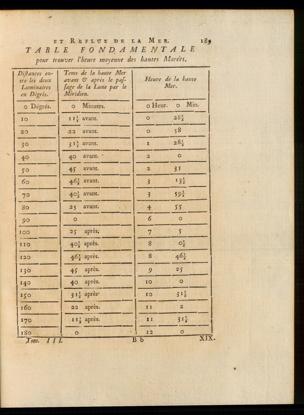 ET REFLUX DE LA MER. 189
TABLE FONDAMENTALE
pour trouver l'heure moyenne des hautes Marées.
Distances entre les deux Luminaires en Dégrés. Tems de la haute Mer avant & après le passage de la Lune par le Méridien. Heure de la haute Mer.
0 Dégrés. 0 Minutes. 0 Heur. 0 Min.
10 11½ avant. 0 28½
20 22 avant. 0 58
30 31½ avant. 1 28½
40 40 avant. 2 0
50 45 avant. 2 35
60 46½ avant. 3 13½
70 40½ avant. 3 59½
80 25 avant. 4 55
90 0 6 0
100 25 après. 7 5
110 40½ après. 8 0½
120 46½ après. 8 46½
130 45 après. 9 25
140 40 après. 10 0
150 31½ après 10 31½
160 22 après. 11 2
170 11½ après. 11 31½
180 0 12 0
Tom. III. Bb XIX.